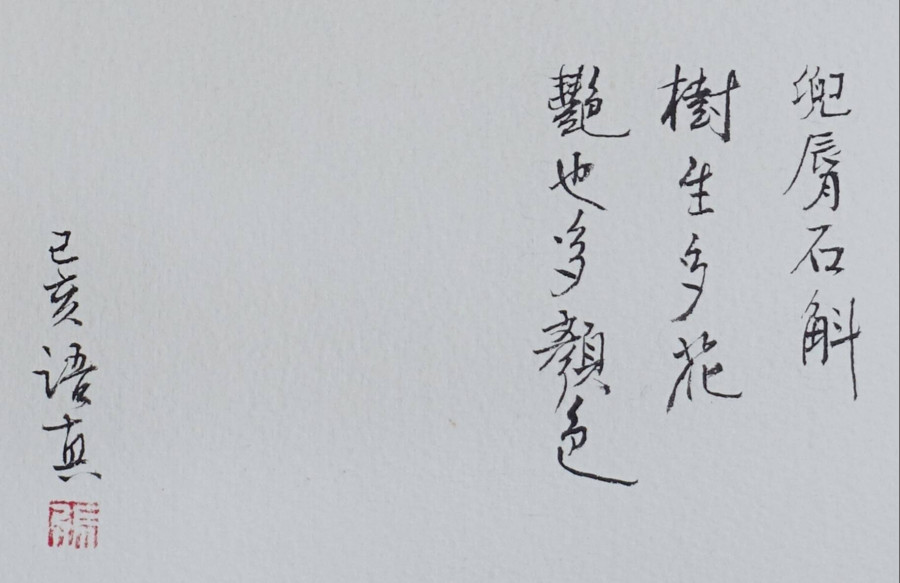 兜唇石斛
樹生多花
艷也多顏色
己亥 語真
張